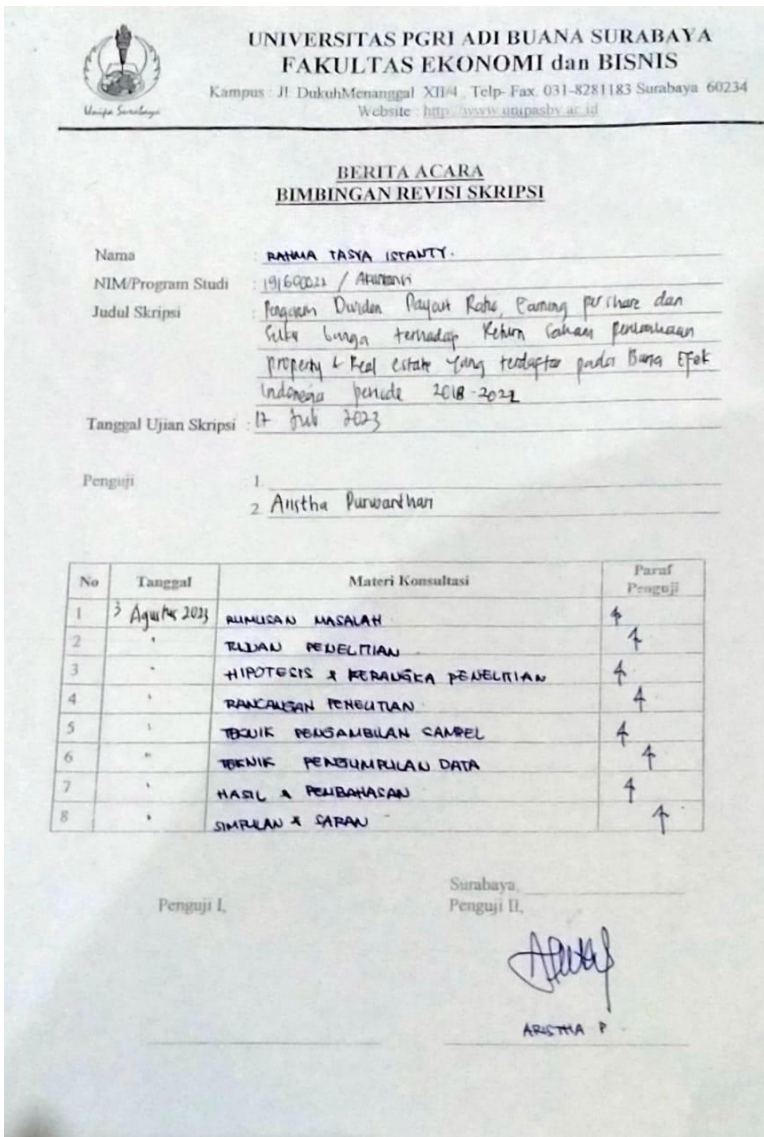 UNIVERSITAS PGRI ADI BUANA SURABAYA
FAKULTAS EKONOMI dan BISNIS
Kampus : Jl. DukuhMenanggal XII/4 , Telp- Fax. 031-8281183 Surabaya 60234
Website : http://www.unipasby.ac.id
Unipa Surabaya
BERITA ACARA
BIMBINGAN REVISI SKRIPSI
Nama : RAHMA TASYA ISTANTY.
NIM/Program Studi : / Akuntansi
Judul Skripsi : Dividen Payout Ratio, Earning per share dan
Suku bunga terhadap Return Saham perusahaan
property & Real estate yang terdaftar pada Bursa Efek
Indonesia periode 2018-2022
Tanggal Ujian Skripsi : 17 Juli 2023
Penguji 1.
2. Aristha Purwanthari
No Tanggal Materi Konsultasi Paraf Penguji
1 3 Agustus 2023 RUMUSAN MASALAH
2 " TUJUAN PENELITIAN
3 " HIPOTESIS & KERANGKA PENELITIAN
4 " RANCANGAN PENELITIAN
5 " TEKNIK PENGAMBILAN SAMPEL
6 " TEKNIK PENGUMPULAN DATA
7 " HASIL & PEMBAHASAN
8 " SIMPULAN & SARAN
Surabaya,
Penguji I, Penguji II,
ARISTHA P.